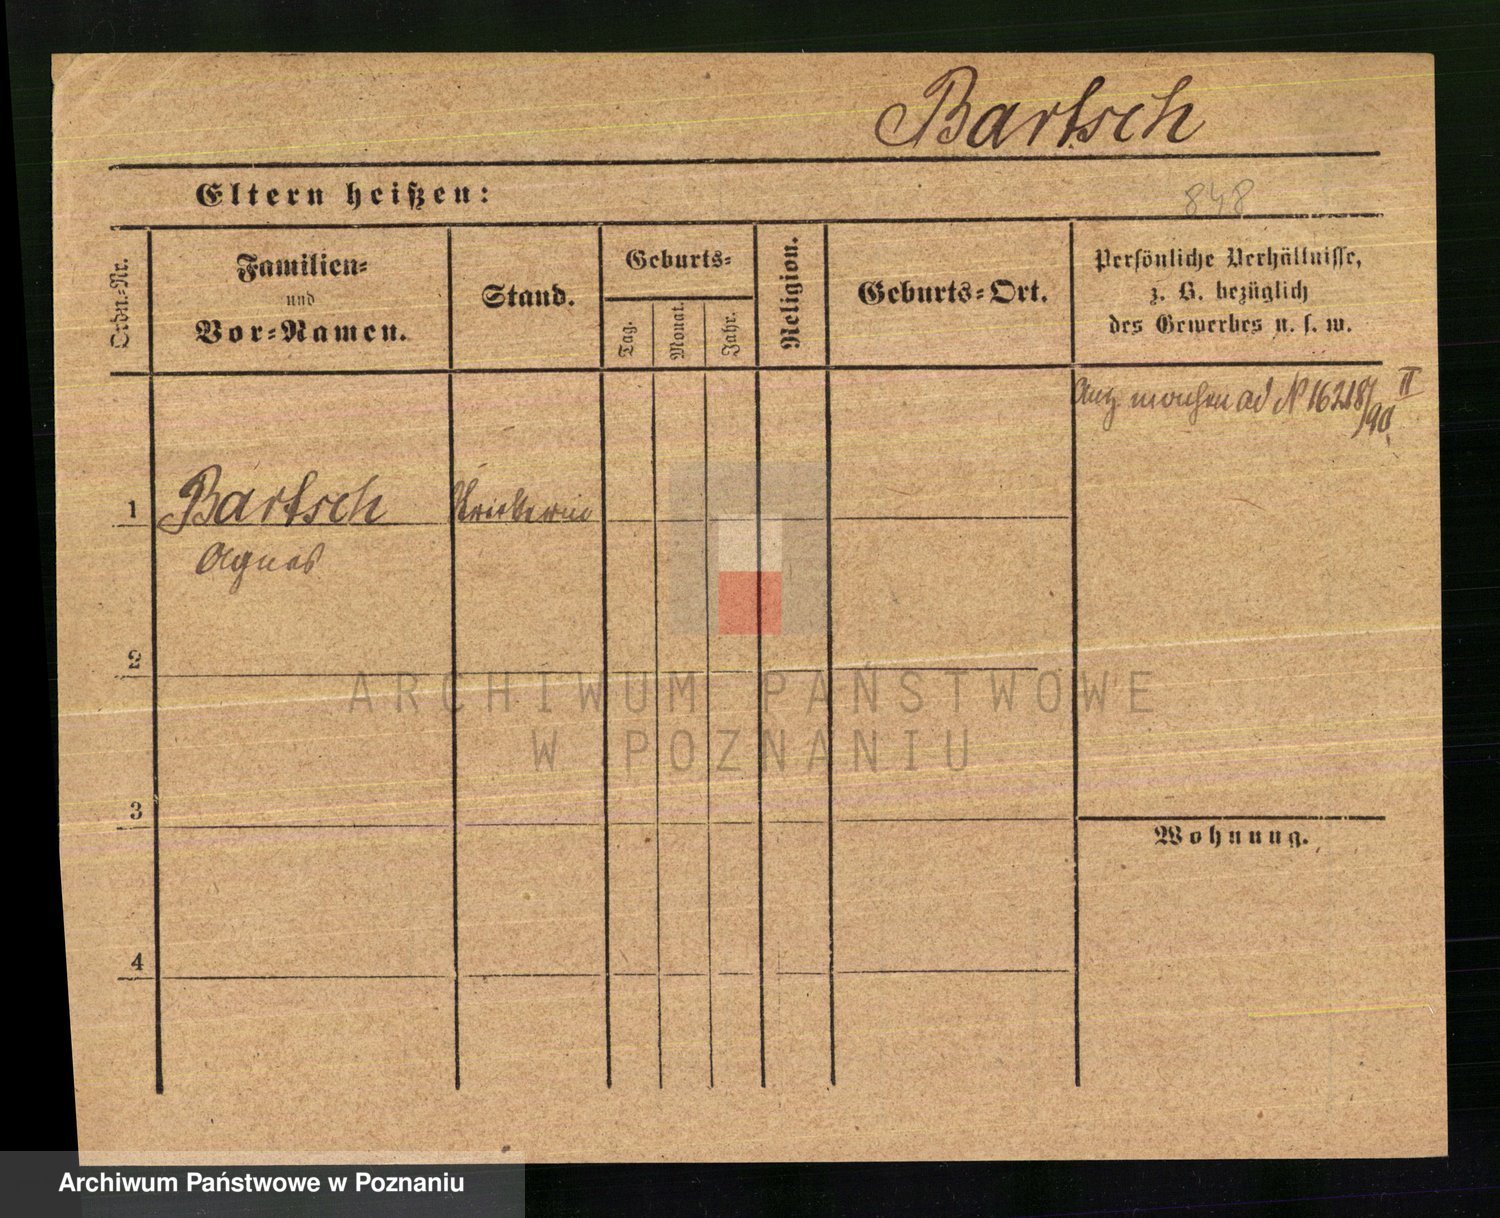 Bartsch
Eltern heißen:
848
Ordn.-Nr.
Familien-
und
Vor-Namen.
Stand.
Geburts-
Tag.
Monat.
Jahr.
Religion.
Geburts-Ort.
Persönliche Verhältnisse,
z. B. bezüglich
des Gewerbes u. s. w.
ad N 16218/90 II
1
Bartsch
Agnes
2
ARCHIWUM PAŃSTWOWE
W POZNANIU
3
Wohnung.
4
Archiwum Państwowe w Poznaniu